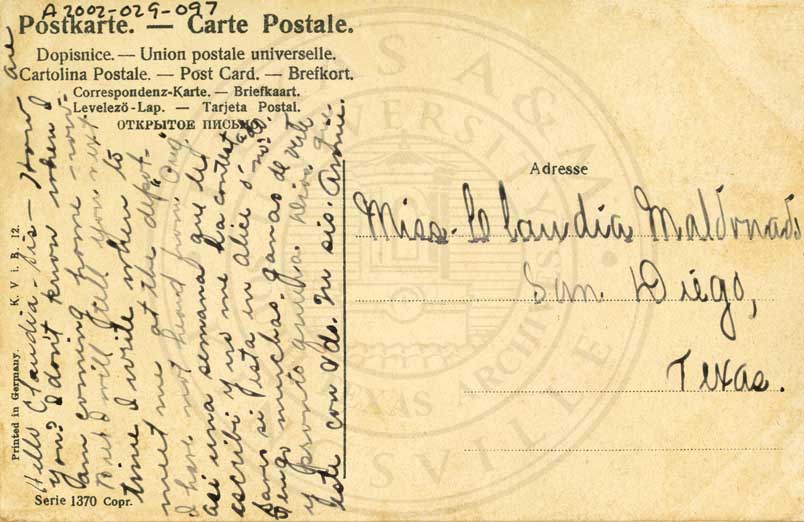 A2002-029-097
Postkarte. — Carte Postale.
Dopisnice. — Union postale universelle.
Cartolina Postale. — Post Card. — Brefkort.
Correspondenz-Karte. — Briefkaart.
Levelező-Lap. — Tarjeta Postal.
ОТКРЫТОЕ ПИСЬМО
Hello Claudia - Sis - How are
you? I don't know when I
am coming home - now.
But I will tell you next
time I write when to
meet me at the depot.
I have not heard from "Aug"
asi una semana que le
escribi y no me ha contestado.
Fiesta in Alice o no.
Tengo muchas ganas de verte
y pronto
este con Vds. Tu sis.
Adresse
Miss. Claudia Maldonado
San Diego,
Texas.
Printed in Germany. K. V. i. B. 12.
Serie 1370 Copr.
TEXAS A&M UNIVERSITY
KINGSVILLE
TEXAS ARCHIVES